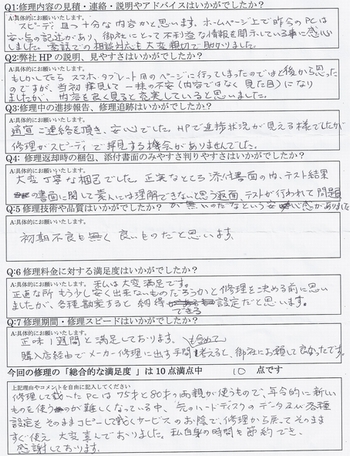 Q1:修理内容の見積・連絡・説明やアドバイスはいかがでしたか?
A:具体的にお願いいたします。
スピーディ 且つ十分な内容かと思います。ホームページ上で昨今のPCは
安い気の記述があり、御社にとって不利な情報を開示している事に感心
しました。電話での相談対応も大変親切で助かりました。
Q:2弊社HPの説明、見やすさはいかがでしたか?
A:具体的にお願いいたします。
もしかしたら スマホ、タブレット用のページに行っていたのではと後から思った
のですが、当初拝見して一抹の不安(内容ではなく見た目)になり
ましたが、内容を良く見ると充実していると思いました。
Q:3修理中の進捗報告、修理追跡はいかがでしたか?
A:具体的にお願いいたします。
適宜ご連絡を頂き、安心でした。HPで進捗状況が見える様でしたが
修理がスピーディで拝見する機会がありませんでした。
Q:4: 修理返却時の梱包、添付書面のみやすさ判りやすさはいかがでしたか?
A:具体的にお願いいたします。
大変丁寧な梱包でした。正直なところ添付書面の内、テスト結果
の書面に関して素人には理解できないと思う反面、テストが行われて問題
が無いのだなという安心感がありました
Q:5修理技術や品質はいかがでしたか?
A:具体的にお願いいたします。
初期不良も無く良いものだと思います。
Q:6 修理料金に対する満足度はいかがでしたか?
A:具体的にお願いいたします。私は大変満足です。
正直な所もう少し安く出来ないものだろうかと修理を決める前に思い
ましたが、各種勘案すると納得できる設定だと思います。
Q:7修理期間・修理スピードはいかがでしたか?
A:具体的にお願いいたします。
正味1週間と満足しております。
購入店経由でメーカー修理に出す手間も含めて考えると、御社にお願いして良かったです。
今回の修理の「総合的な満足度」は10点満点中 10 点です
上記理由やコメントを自由に記入してください
修理して頂いたPCは75才と80才の両親が使うもので、年令的に新しい
ものを使うのが難しくなっている中、元のハードディスクのデータや各種
設定をそのままコピーして頂くサービスのお陰で、修理から戻ってそのまま
すぐ使え大変喜んでおりました。私自身の時間も節約でき、
感謝しております。